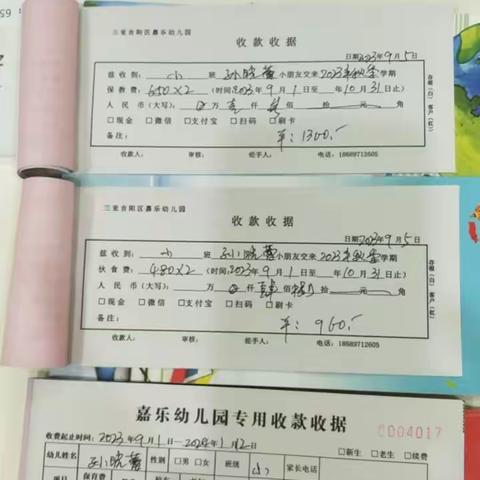 三亚吉阳区嘉乐幼儿园
收款收据
日期2023年9月5日
兹收到: 小 班 孙晓蕾小朋友交来2023年秋季学期
保教费: 650×2 (时间2023年9月1日至 年10月31日止)
人民币(大写): 万壹仟 佰 拾 元 角
□现金 □微信 □支付宝 □扫码 □刷卡
备注: ¥:1300.-
收款人: 审核: 经手人: 电话: 18689712605
存根(白) 客户(红)
三亚吉阳区嘉乐幼儿园
收款收据
日期2023年9月5日
兹收到: 小 班 孙晓蕾小朋友交来2023年秋季学期
伙食费: 480×2 (时间2023年9月1日至 年10月31日止)
人民币(大写): 万 仟 佰 拾 元 角
□现金 □微信 □支付宝 □扫码 □刷卡
备注: ¥:960.-
收款人: 审核: 经手人: 电话: 18689712605
存根(白) 客户(红)
嘉乐幼儿园专用收款收据
0004017
收费起止时间:2023年9月1日—2024年1月2日 □新生 □老生 □续费
幼儿姓名 孙晓蕾 性别 □男 □女 班级 小 家长电话
项目 保育费